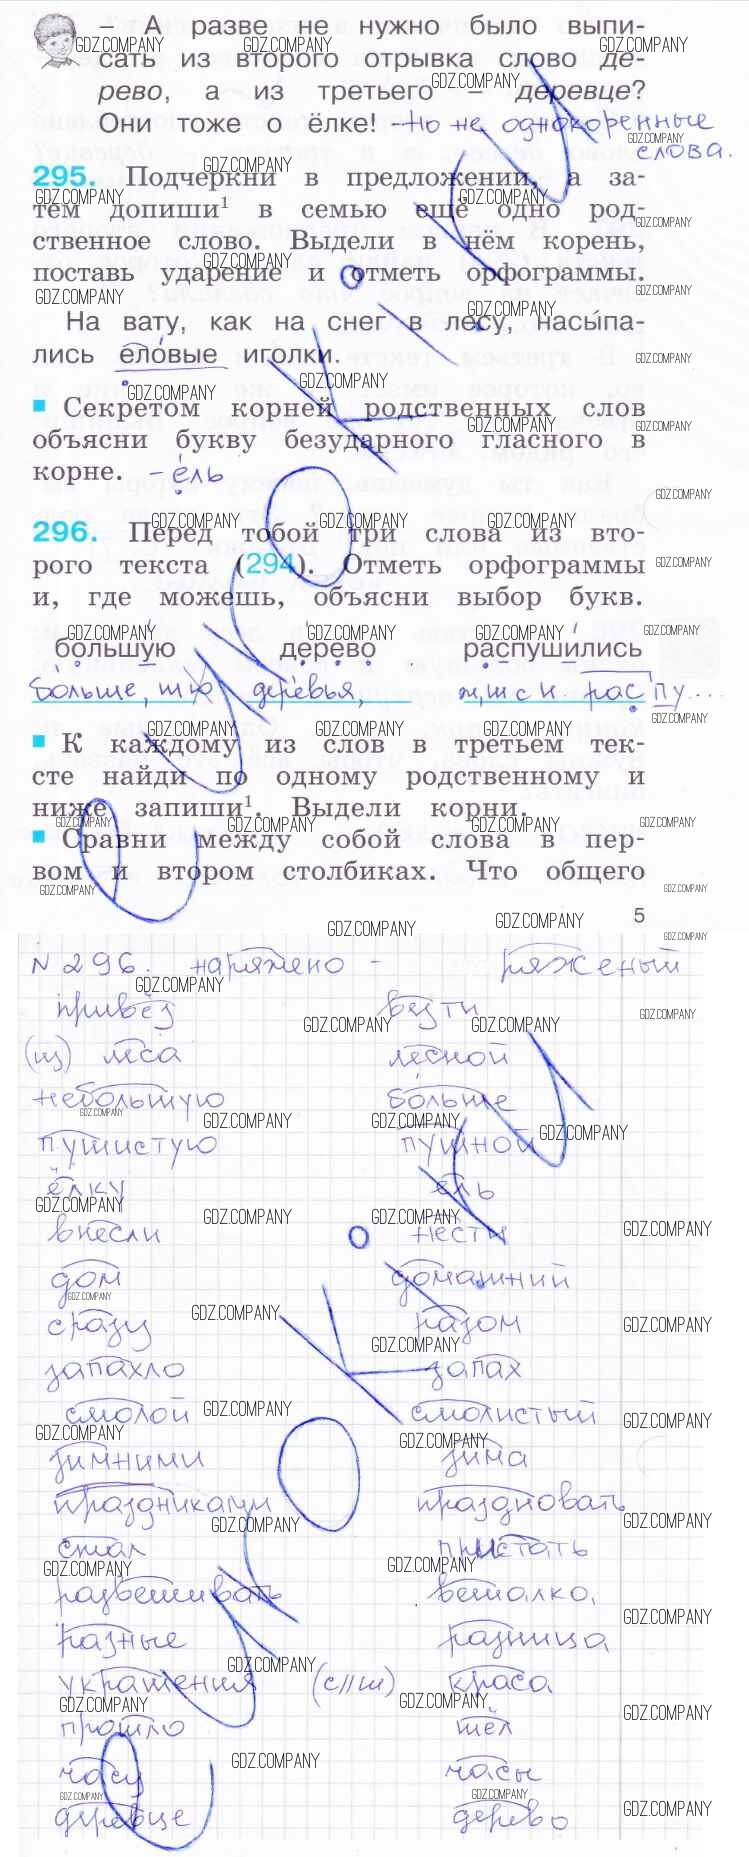 – А разве не нужно было выпи-
сать из второго отрывка слово де-
рево, а из третьего – деревце?
Они тоже о ёлке! – Но не однокоренные
слова.
295. Подчеркни в предложении, а за-
тем допиши¹ в семью ещё одно род-
ственное слово. Выдели в нём корень,
поставь ударение и отметь орфограммы.
На вату, как на снег в лесу, насы́па-
лись еловые иголки.
Секретом корней родственных слов
объясни букву безударного гласного в
корне. – е́ль
296. Перед тобой три слова из вто-
рого текста (294). Отметь орфограммы
и, где можешь, объясни выбор букв.
большую дерево распушились
больше, шую деревья, ж,ш с и распу...
К каждому из слов в третьем тек-
сте найди по одному родственному и
ниже запиши¹. Выдели корни.
Сравни между собой слова в пер-
вом и втором столбиках. Что общего
5
N 296. наряжено – ряженый
привёз везти
(из) леса лесной
небольшую больше
пушистую пушной
ёлку ель
внесли нести
дом домашний
сразу разом
запахло запах
смолой смолистый
зимними зима
праздниками праздновать
стал пристать
развешивать вешалка
разные разница
украшения (с//ш) краса
прошло шёл
часу часы
деревце дерево
GDZ.COMPANY
eurokI.ru